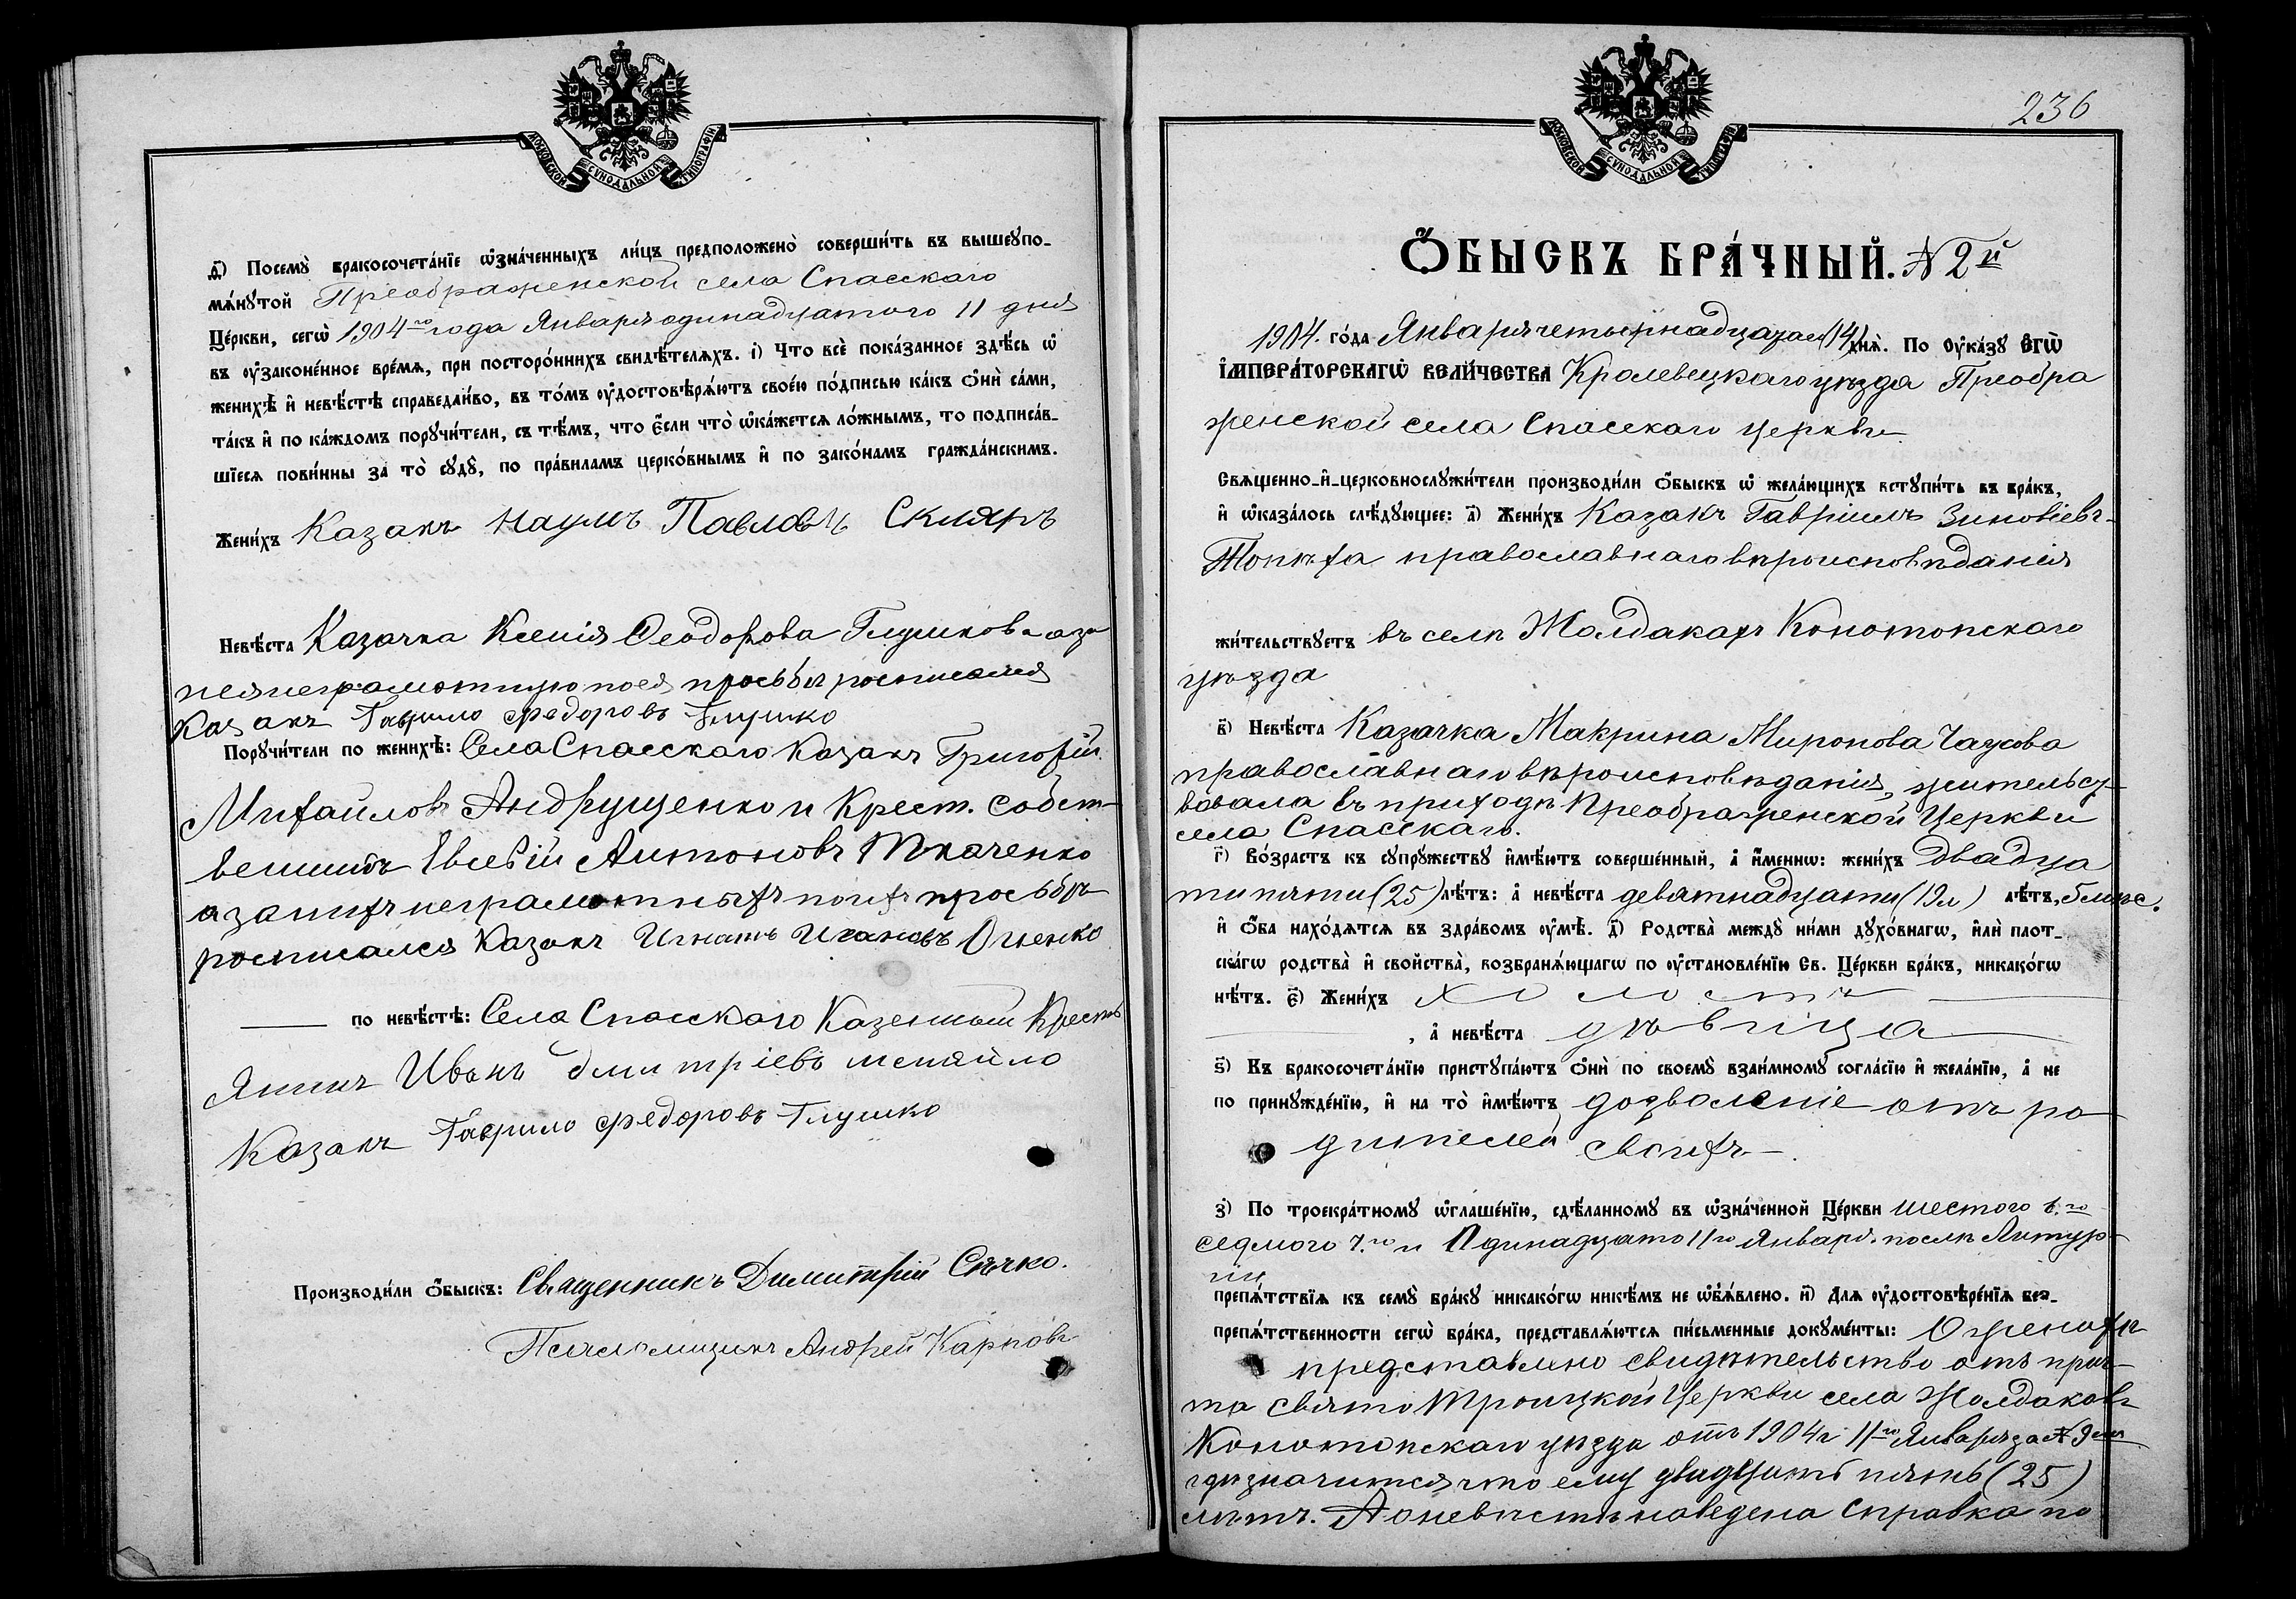 МОСКОВСКОЙ СѴНОДАЛЬНОЙ ТИПОГРАФІИ
д҃) Посемꙋ̀ бракосочета́нїе ѡ҆зна́ченныхъ ли́цъ предположено̀ соверши́ть въ вышеꙋпо-
мѧ́нꙋтой Преображенской села Спасскаго
Це́ркви, сегѡ̀ 1904го года Января одинадцатого 11 дня
въ ѹ҆законе́нное вре́мѧ, при посторо́ннихъ свидѣ́телѧхъ. і҃) Что всѐ пока́занное здѣ́сь ѡ҆
женихѣ̀ и҆ невѣ́стѣ справедли́во, въ то́мъ ѹ҆достовѣрѧ́ютъ свое́ю по́дписью ка́къ ѻ҆нѝ са́ми,
та́къ и҆ по ка́ждомъ порꙋчи́тели, съ тѣ́мъ, что є҆́сли что̀ ѡ҆ка́жетсѧ ло́жнымъ, то подписа́в-
шїесѧ пови́нны за то̀ сꙋдꙋ̀, по пра́виламъ церко́внымъ и҆ по зако́намъ гражда́нскимъ.
Жени́хъ Казакъ Наумъ Павловъ Скляръ
Невѣ́ста Казачка Ксенія Ѳеодорова Глушкова а за
нея неграмотную по ея просьбѣ росписался
Казакъ Гаврило Федоровъ Глушко
Порꙋчи́тели по женихѣ̀: Села Спасскаго Казакъ Григорій
Михайловъ Андрущенко и Крест. собст-
венникъ Евсевій Антоновъ Ткаченко
а за нихъ неграмотныхъ по ихъ просьбѣ
росписался Казакъ Игнатъ Ивановъ Огіенко
по невѣ́стѣ: Села Спасскаго Казенный Кресть
янинъ Иванъ Дмитріевъ
Казакъ Гаврило Федоровъ Глушко
Производи́ли ѻ҆́быскъ: Священникъ Димитрій Сѣчко.
Псаломщикъ Андрей Карповъ
МОСКОВСКОЙ СѴНОДАЛЬНОЙ ТИПОГРАФІИ
236
Ѻ҆́БЫСКЪ БРА́ЧНЫЙ. № 2й
1904. го́да Января четырнадцатаго (14) днѧ̀. По ѹ҆ка́зꙋ Є҆ГѠ̀
И҆МПЕРА́ТОРСКАГѠ ВЕЛИ́ЧЕСТВА Кролевецкаго уѣзда Преобра
женской села Спасскаго церкви
Свѧщенно-и҆-церковнослꙋжи́тели производи́ли ѻ҆́быскъ ѡ҆ жела́ющихъ встꙋпи́ть въ бра́къ,
и҆ ѡ҆каза́лось слѣ́дꙋющее: а҃) Жени́хъ Казакъ Гавріилъ Зиновіевъ
Топѣха православнаго вѣроисповѣданія
жи́тельствꙋетъ въ селѣ Жолдакахъ Конотопскаго
уѣзда
в҃) Невѣ́ста Казачка Макрина Миронова Чаусова
православнаго вѣроисповѣданія, жительст-
вовала въ приходѣ Преображенской Церкви
села Спасскаго.
г҃) Во́зрастъ къ сꙋпрꙋ́жествꙋ и҆мѣ́ютъ соверше́нный, а҆ и҆́меннѡ: жени́хъ двадца
ти пяти (25) лѣ́тъ: а҆ невѣ́ста девятнадцати (19л) лѣ́тъ,
и҆ ѻ҆́ба нахо́дѧтсѧ въ здра́вомъ ѹ҆мѣ̀. д҃) Родства̀ междꙋ ни́ми дꙋхо́внагѡ, и҆лѝ плот-
ска́гѡ родства̀ и҆ сво́йства, возбранѧ́ющагѡ по ѹ҆становле́нїю Св. Це́ркви бра́къ, никако́гѡ
нѣ́тъ. є҃) Жени́хъ холостъ
, а҆ невѣ́ста дѣвица
ѕ҃) Къ бракосочета́нїю пристꙋпа́ютъ ѻ҆нѝ по своемꙋ̀ взаи́мномꙋ согла́сїю и҆ жела́нїю, а҆ не
по принꙋжде́нїю, и҆ на то̀ и҆мѣ́ютъ дозволеніе отъ ро
дителей своихъ.
з҃) По троекра́тномꙋ ѡ҆глаше́нїю, сдѣ́ланномꙋ въ ѡ҆зна́ченной Це́ркви шестого 6.го
седмого 7.го и Одинадцато 11го Января послѣ Литур-
гіи
препѧ́тствїѧ къ семꙋ̀ бра́кꙋ никако́гѡ никѣ́мъ не ѡ҆б̾ѧ́влено. и҃) Для ѹ҆достовѣре́нїѧ без-
препѧ́тственности сегѡ̀ бра́ка, представлѧ́ютсѧ пи́сьменные докꙋме́нты: О женихѣ
представлено свидѣтельство отъ прич-
та Свято Троицкой Церкви села Жолдаковъ
Конотопскаго уѣзда отъ 1904 г. 11го Января за № 9
гдѣ значится что ему двадцать пять (25)
лѣтъ. А о невѣстѣ наведена справка по